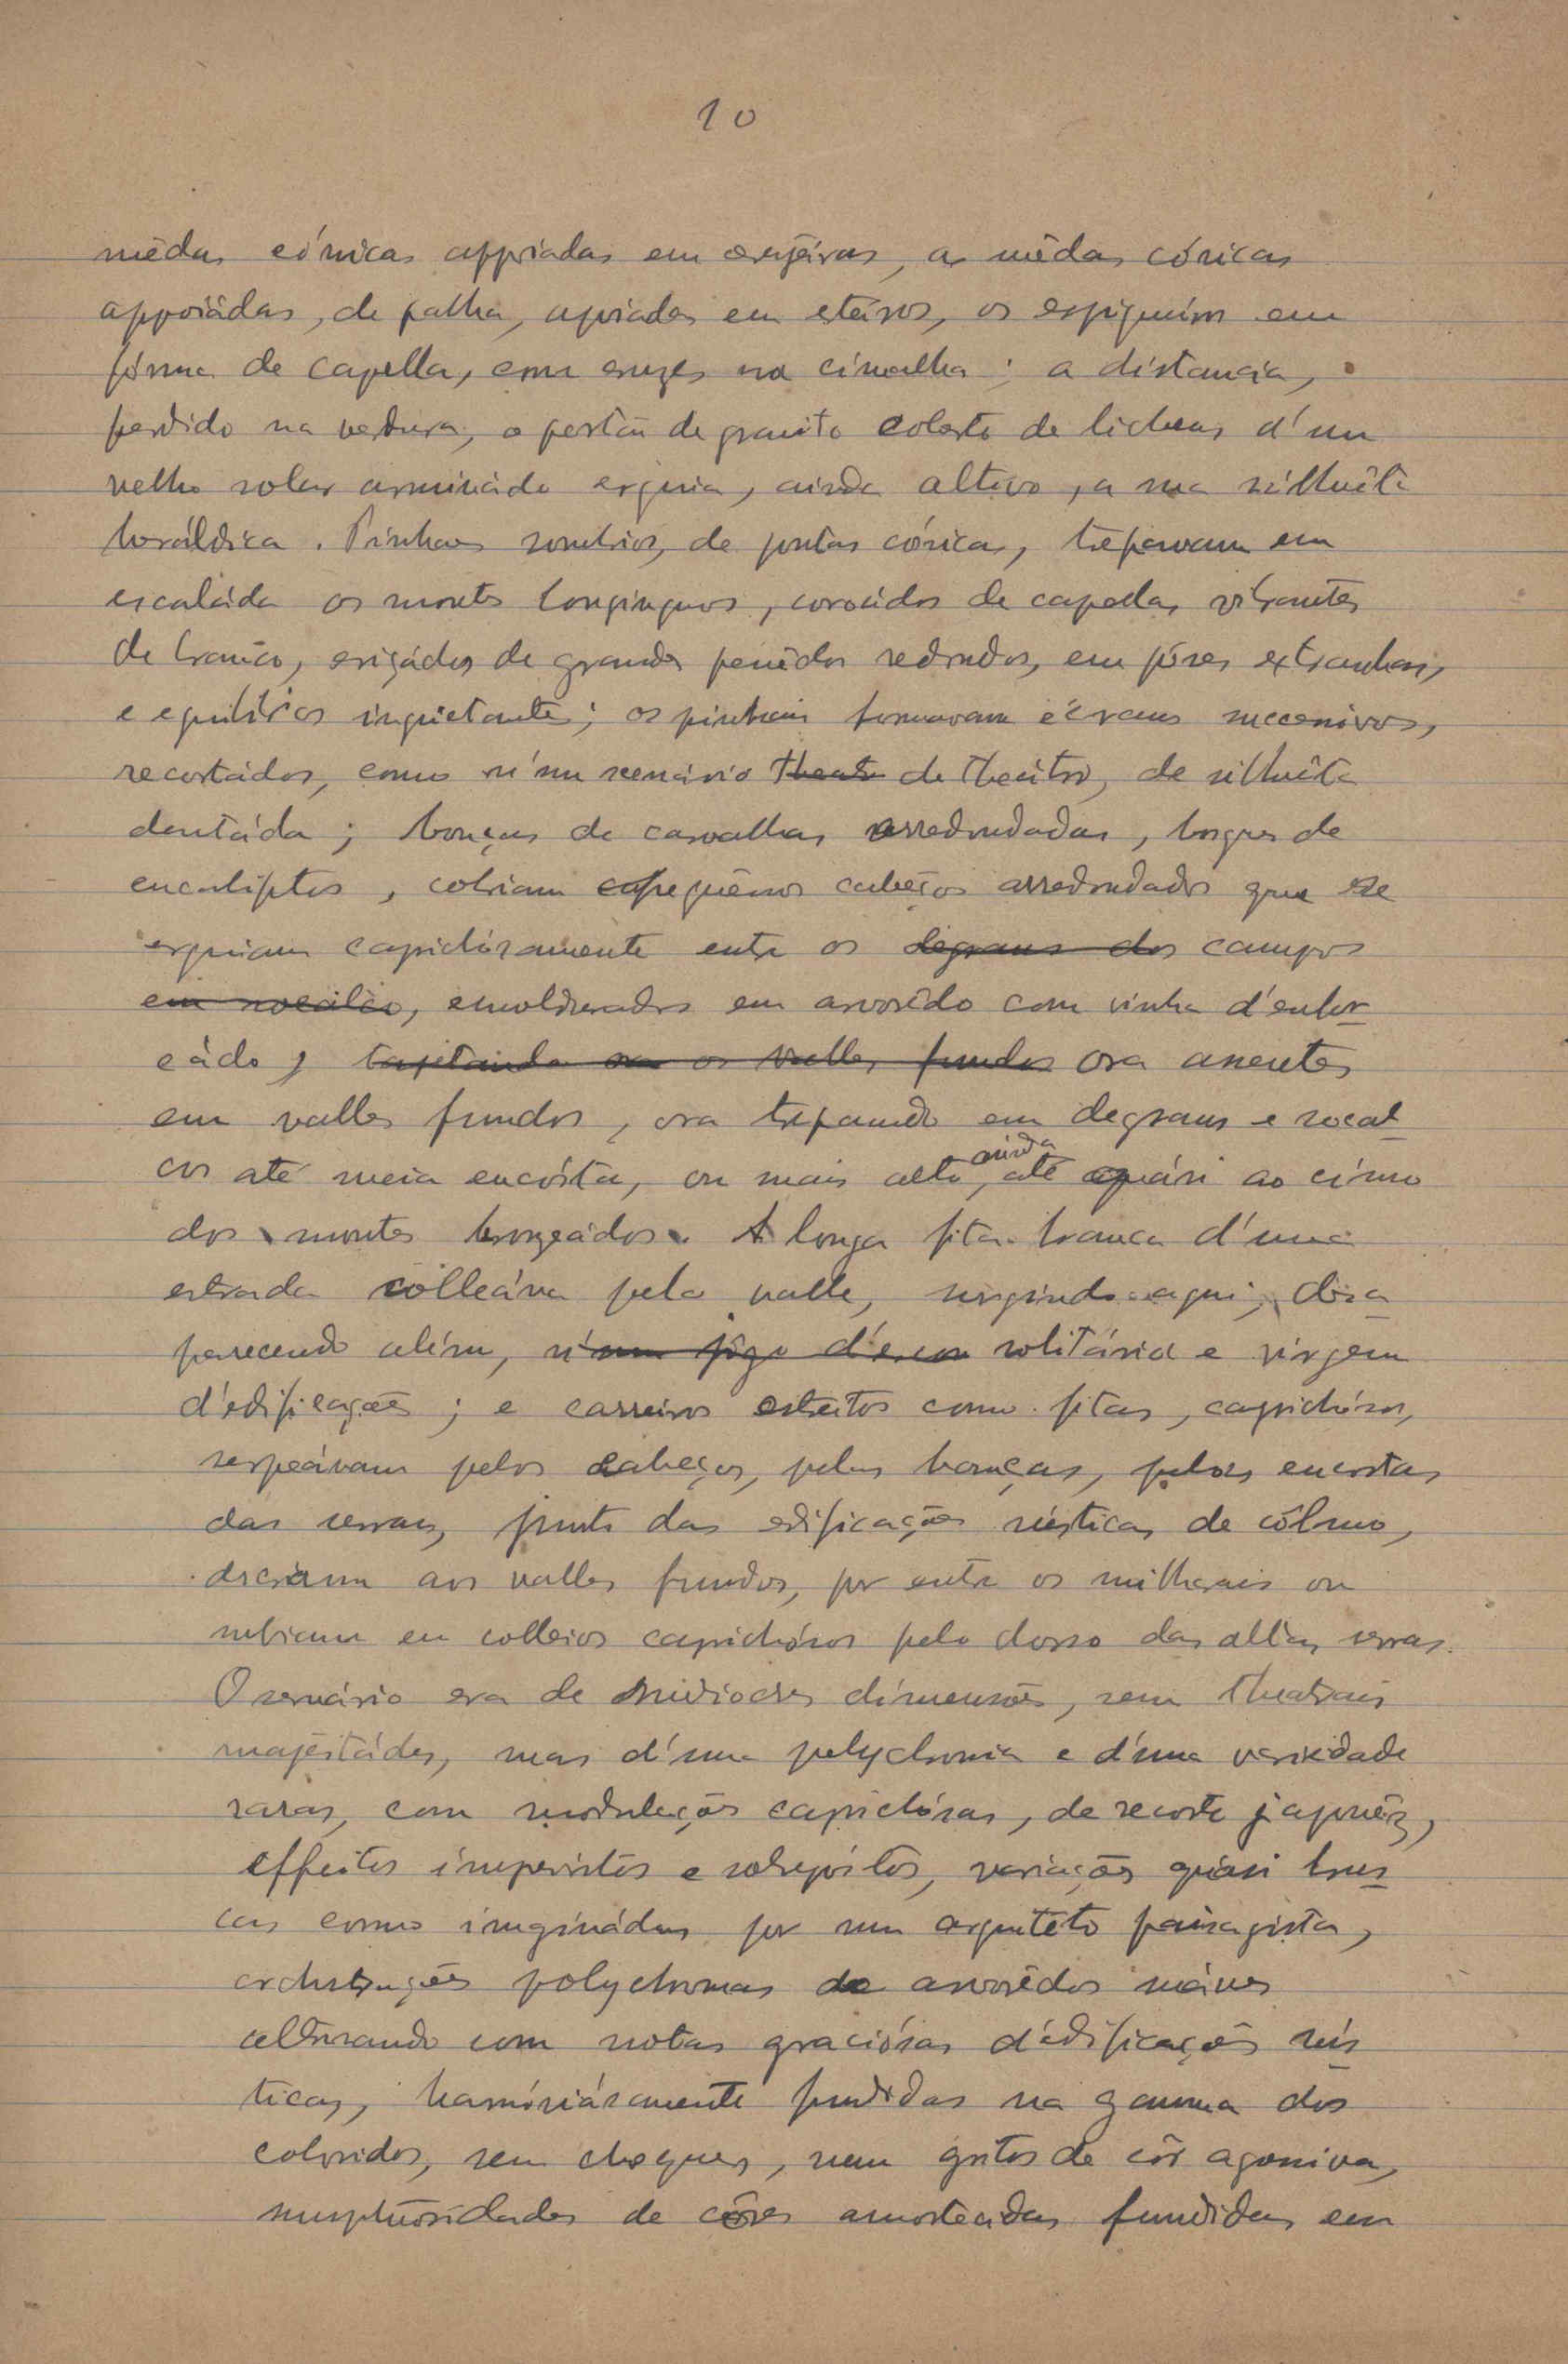 10
mêdas cónicas appoiadas em, as mêdas cónicas
appoiádas, de palha, apoiadas em esteios, os espigueiros em
fórma de capella, com cruzes na cimalha; a distancia,
perdido na verdura, o portão de granito coberto de lichens d'um
velho solar arruinádo erguia, ainda altivo, a sua silhuêta
heráldica. Pinhaes sombrios, de pontas cónicas, trepavam em
escaláda os montes longinquos, coroádos de capellas vibrantes
de branco, eriçádos de grandes penêdos redondos, em póses extranhas,
e equilíbrios inquietantes; os pinhais formavam écrans successivos,
recortádos, como n'um scenário theatr de theátro, de silhuêta
dentáda; bouças de carvalhas arredondadas, bosques de
eucaliptos, cobriam pequênos cabêços arredondados que se
erguiam caprichósamente entre os degraus dos campos
em socalco, emoldurados em arvorêdo com vinha d'enfor-
cádo, tapetando os valles fundos ora assentes
em valles fundos, ora trepando em degraus e socal-
cos até meia encósta, ou mais alto, ainda até quási ao címo
dos montes bronzeádos. A longa fita branca d'uma
estrada colleáva pelo valle, surgindo aqui, desa-
parecendo além, n'um jôgo d'écran solitária e virgem
d'edificações; e carreiros estreitos como fitas, caprichósos,
serpeávam pelos cabeços, pelas bouças, pelas encostas
das serras, junto das edificações rústicas de côlmo,
desciam aos valles fundos, por entre os milharais ou
subiam em colleios caprichósos pelo dorso das altas serras.
O scenário era de mediocres dímensões, sem theatrais
majestádes, mas d'uma polychromia e d'uma variedade
raras, com modulações caprichósas, de recorte japonêz,
effeitos imprevistos e sobrepóstos, variações quási brus-
cas como imaginádas por um arquitéto paisagista,
orchestrações polychromas de arvorêdos suáves
alternando com notas graciósas d'edificações rús-
ticas, harmóniósamente fundidas na gamma dos
coloridos, sem choques, nem gritos de côr agressiva,
sumptuosidades de côres amortecidas fundidas em